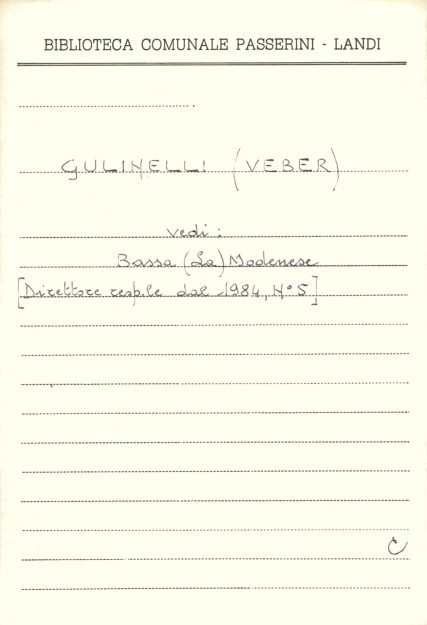 BIBLIOTECA COMUNALE PASSERINI - LANDI
GULINELLI (VEBER)
vedi:
Bassa (La) Modenese
[Direttore resp.le dal 1984, N° 5]